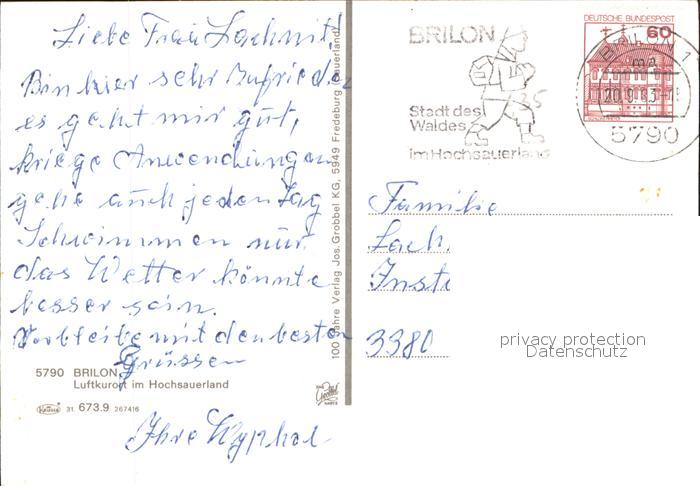 Liebe Frau Lachnit!
Bin hier sehr zufrieden
es geht mir gut,
kriege Anwendungen
gehe auch jeden Tag
Schwimmen nur
das Wetter könnte
besser sein.
Verbleibe mit den besten
Grüssen
Ihre
5790 BRILON,
Luftkurort im Hochsauerland
31. 673.9 267416
100 Jahre Verlag Jos. Grobbel KG, 5949 Fredeburg (Sauerland)
BRILON
Stadt des
Waldes
im Hochsauerland
DEUTSCHE BUNDESPOST
60
BRILON 1
ma
20.9.83
5790
Familie
Lach
Inst
3380
privacy protection
Datenschutz